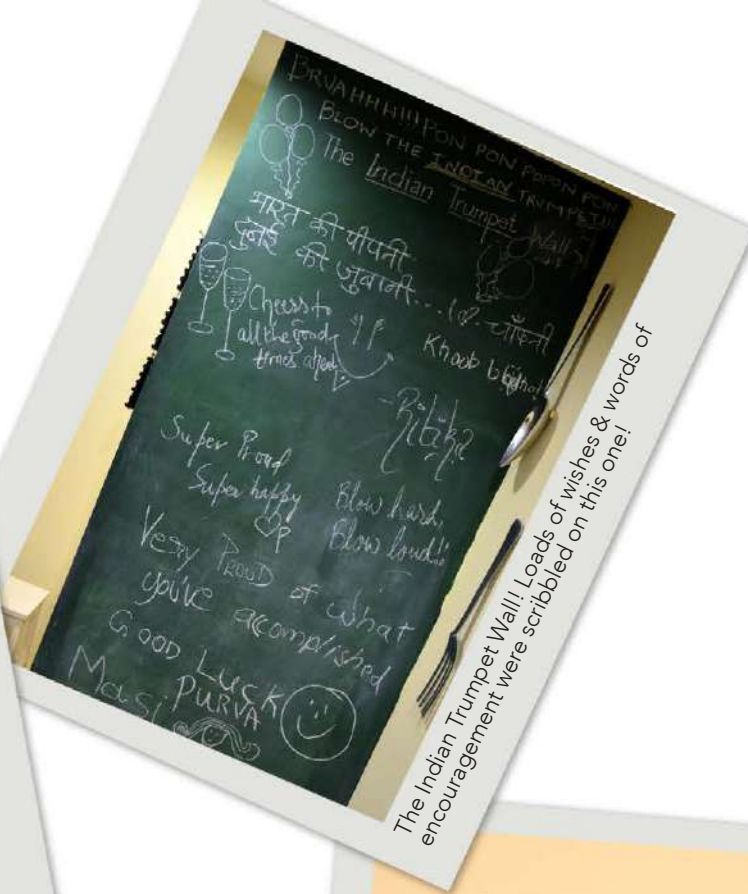 BRVAHHHH!!! PON PON POPON PON
BLOW THE INDIAN TRUMPET!!!
The Indian Trumpet Wall
भारत की पीपनी
की जुबानी...
Cheers to
all the good
times ahead
Khoob
-Ritika
Super Proud
Super happy
Blow hard,
Blow loud!!
Very PROUD of what
you've accomplished
GOOD LUCK
PURVA
Masi
The Indian Trumpet Wall! Loads of wishes & words of
encouragement were scribbled on this one!